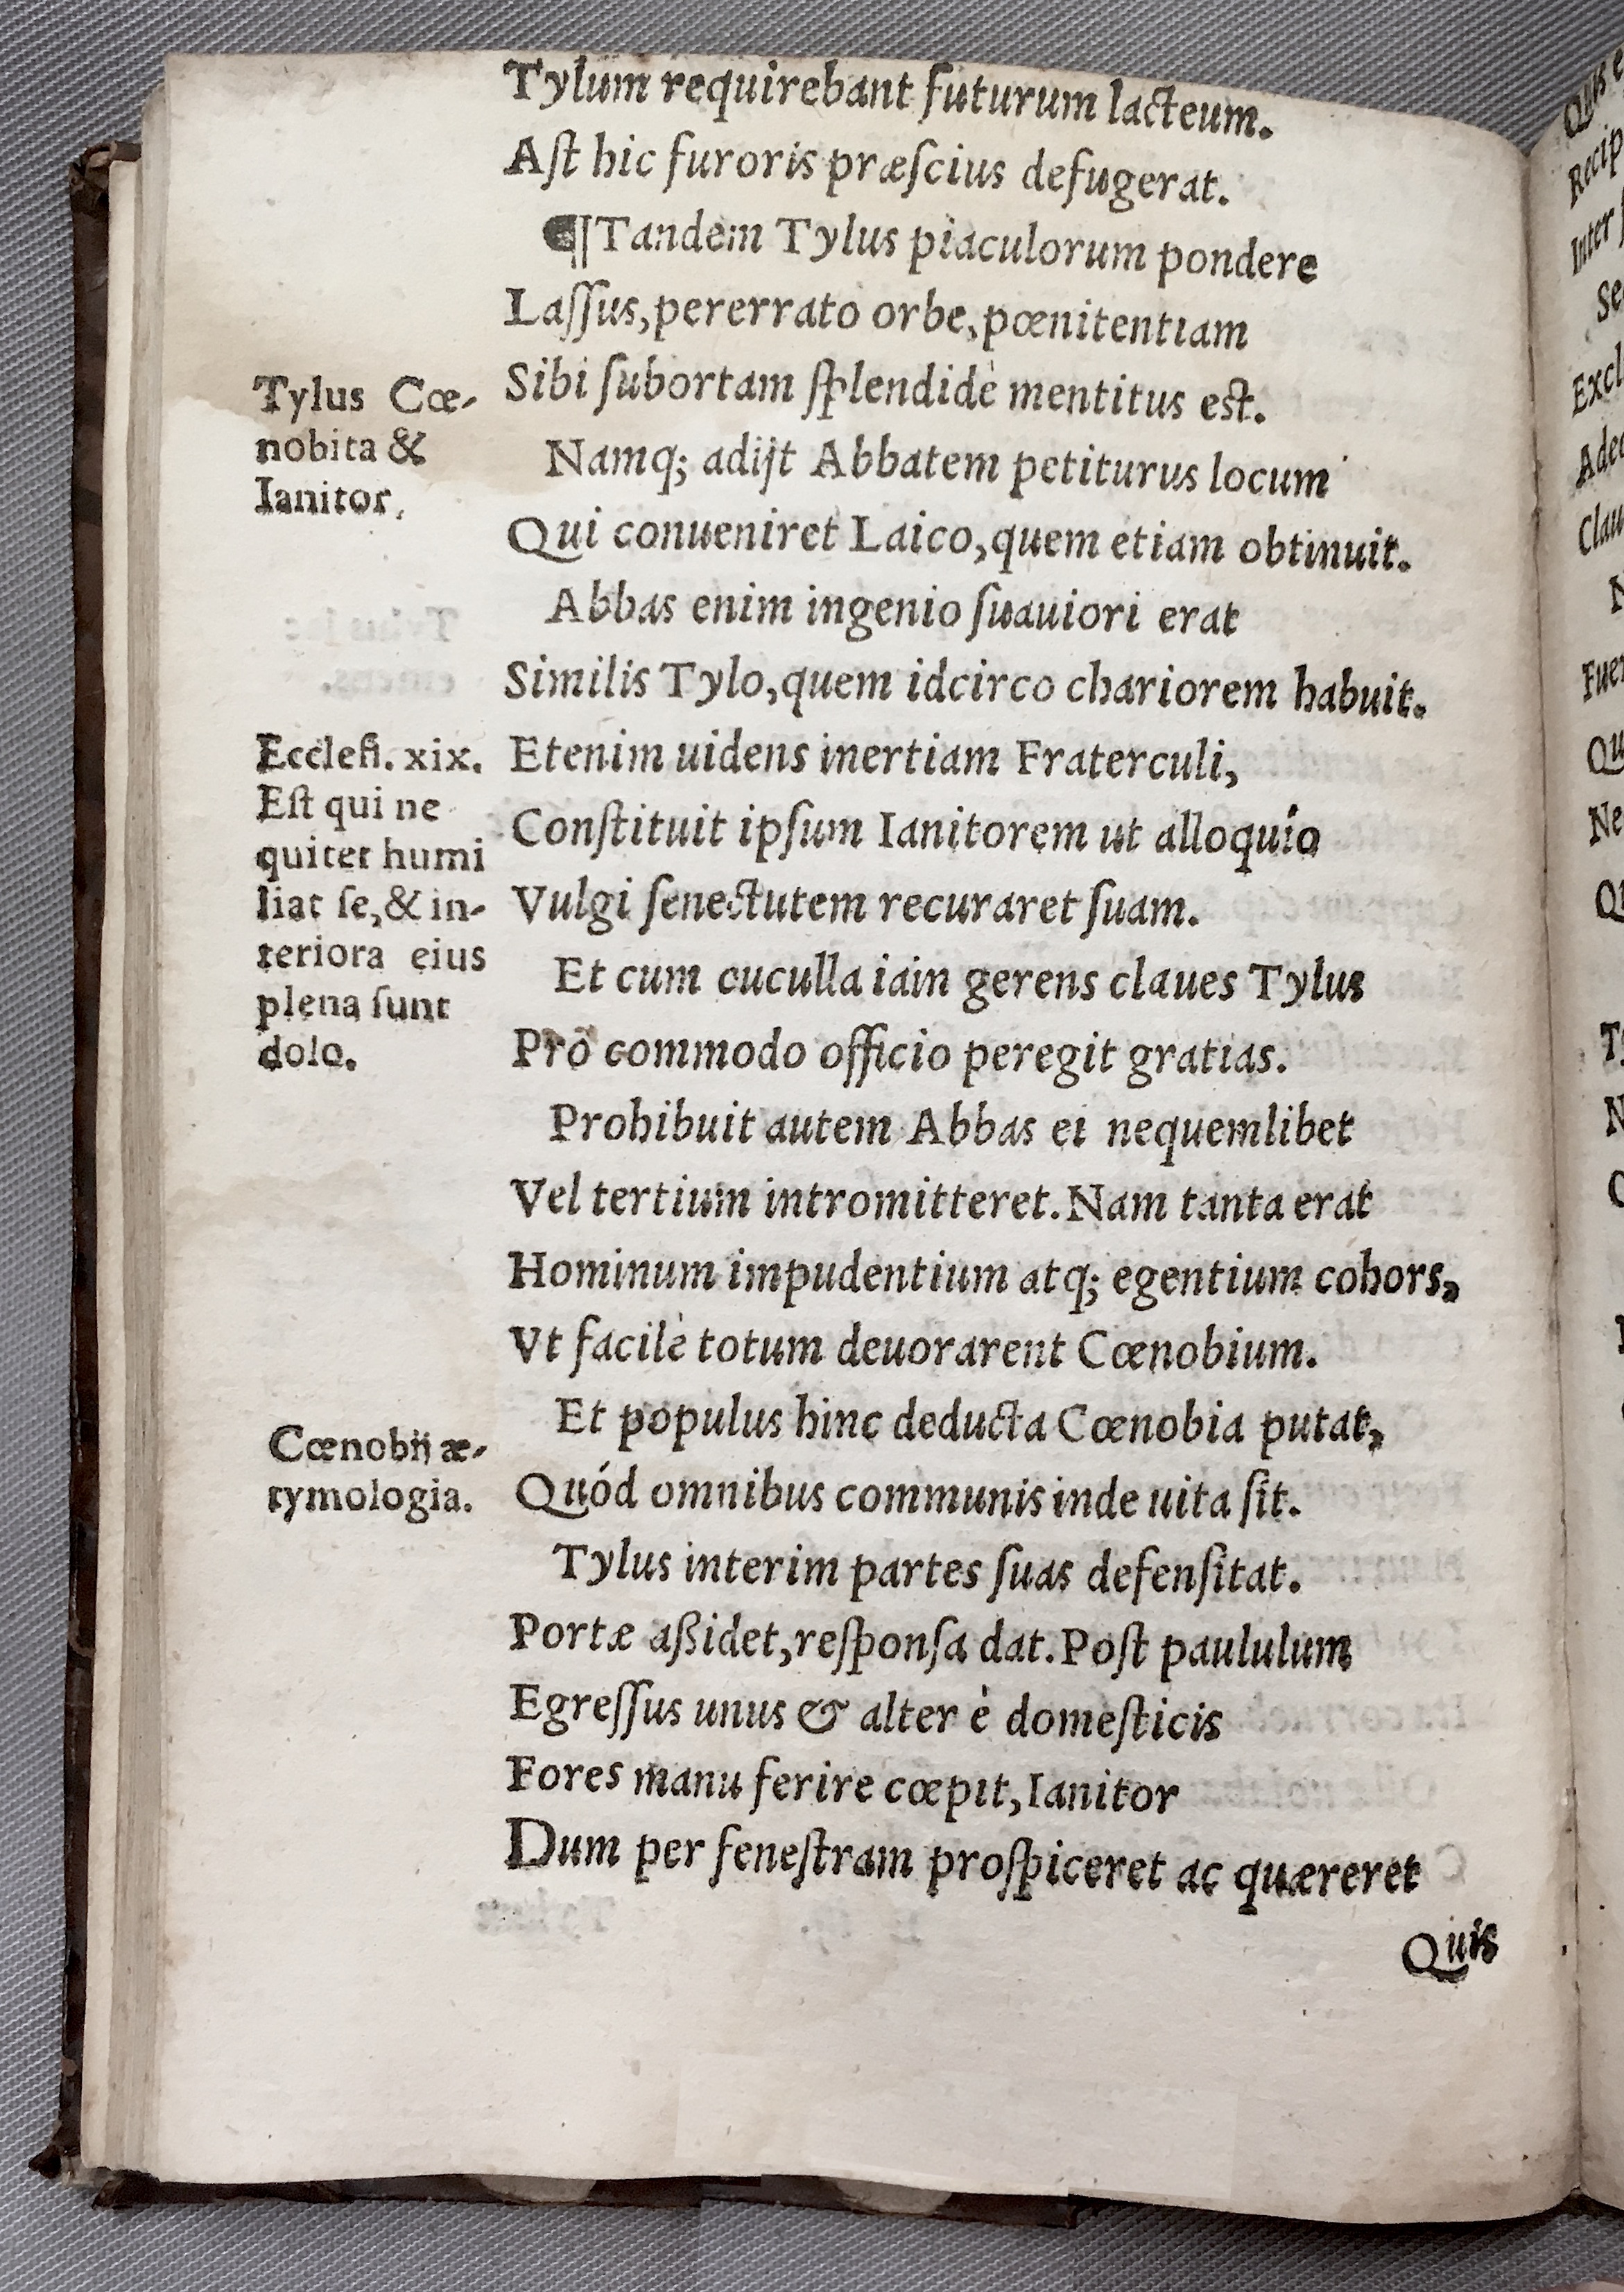 Tylum requirebant futurum lacteum.
Aſt hic furoris præſcius defugerat.
¶Tandem Tylus piaculorum pondere
Laſſus, pererrato orbe, pœnitentiam
Sibi ſubortam ſplendidè mentitus est.
Namq; adijt Abbatem petiturus locum
Qui conueniret Laico, quem etiam obtinuit.
Abbas enim ingenio ſuauiori erat
Similis Tylo, quem idcirco chariorem habuit.
Etenim uidens inertiam Fraterculi,
Conſtituit ipſum Ianitorem ut alloquio
Vulgi ſenectutem recuraret ſuam.
Et cum cuculla iam gerens claues Tylus
Pro commodo officio peregit gratias.
Prohibuit autem Abbas ei nequemlibet
Vel tertium intromitteret. Nam tanta erat
Hominum impudentium atq; egentium cohors,
Vt facilè totum deuorarent Cœnobium.
Et populus hinc deducta Cœnobia putat,
Quód omnibus communis inde uita ſit.
Tylus interim partes ſuas defenſitat.
Portæ aßidet, reſponſa dat. Poſt paululum
Egreſſus unus & alter è domeſticis
Fores manu ferire cœpit, Ianitor
Dum per feneſtram proſpiceret ac quæreret
Quis
Tylus Cœ-
nobita &
Ianitor.
Eccleſi. xix.
Eſt qui ne
quiter humi
liat ſe, & in-
teriora eius
plena ſunt
dolo.
Cœnobij æ-
tymologia.